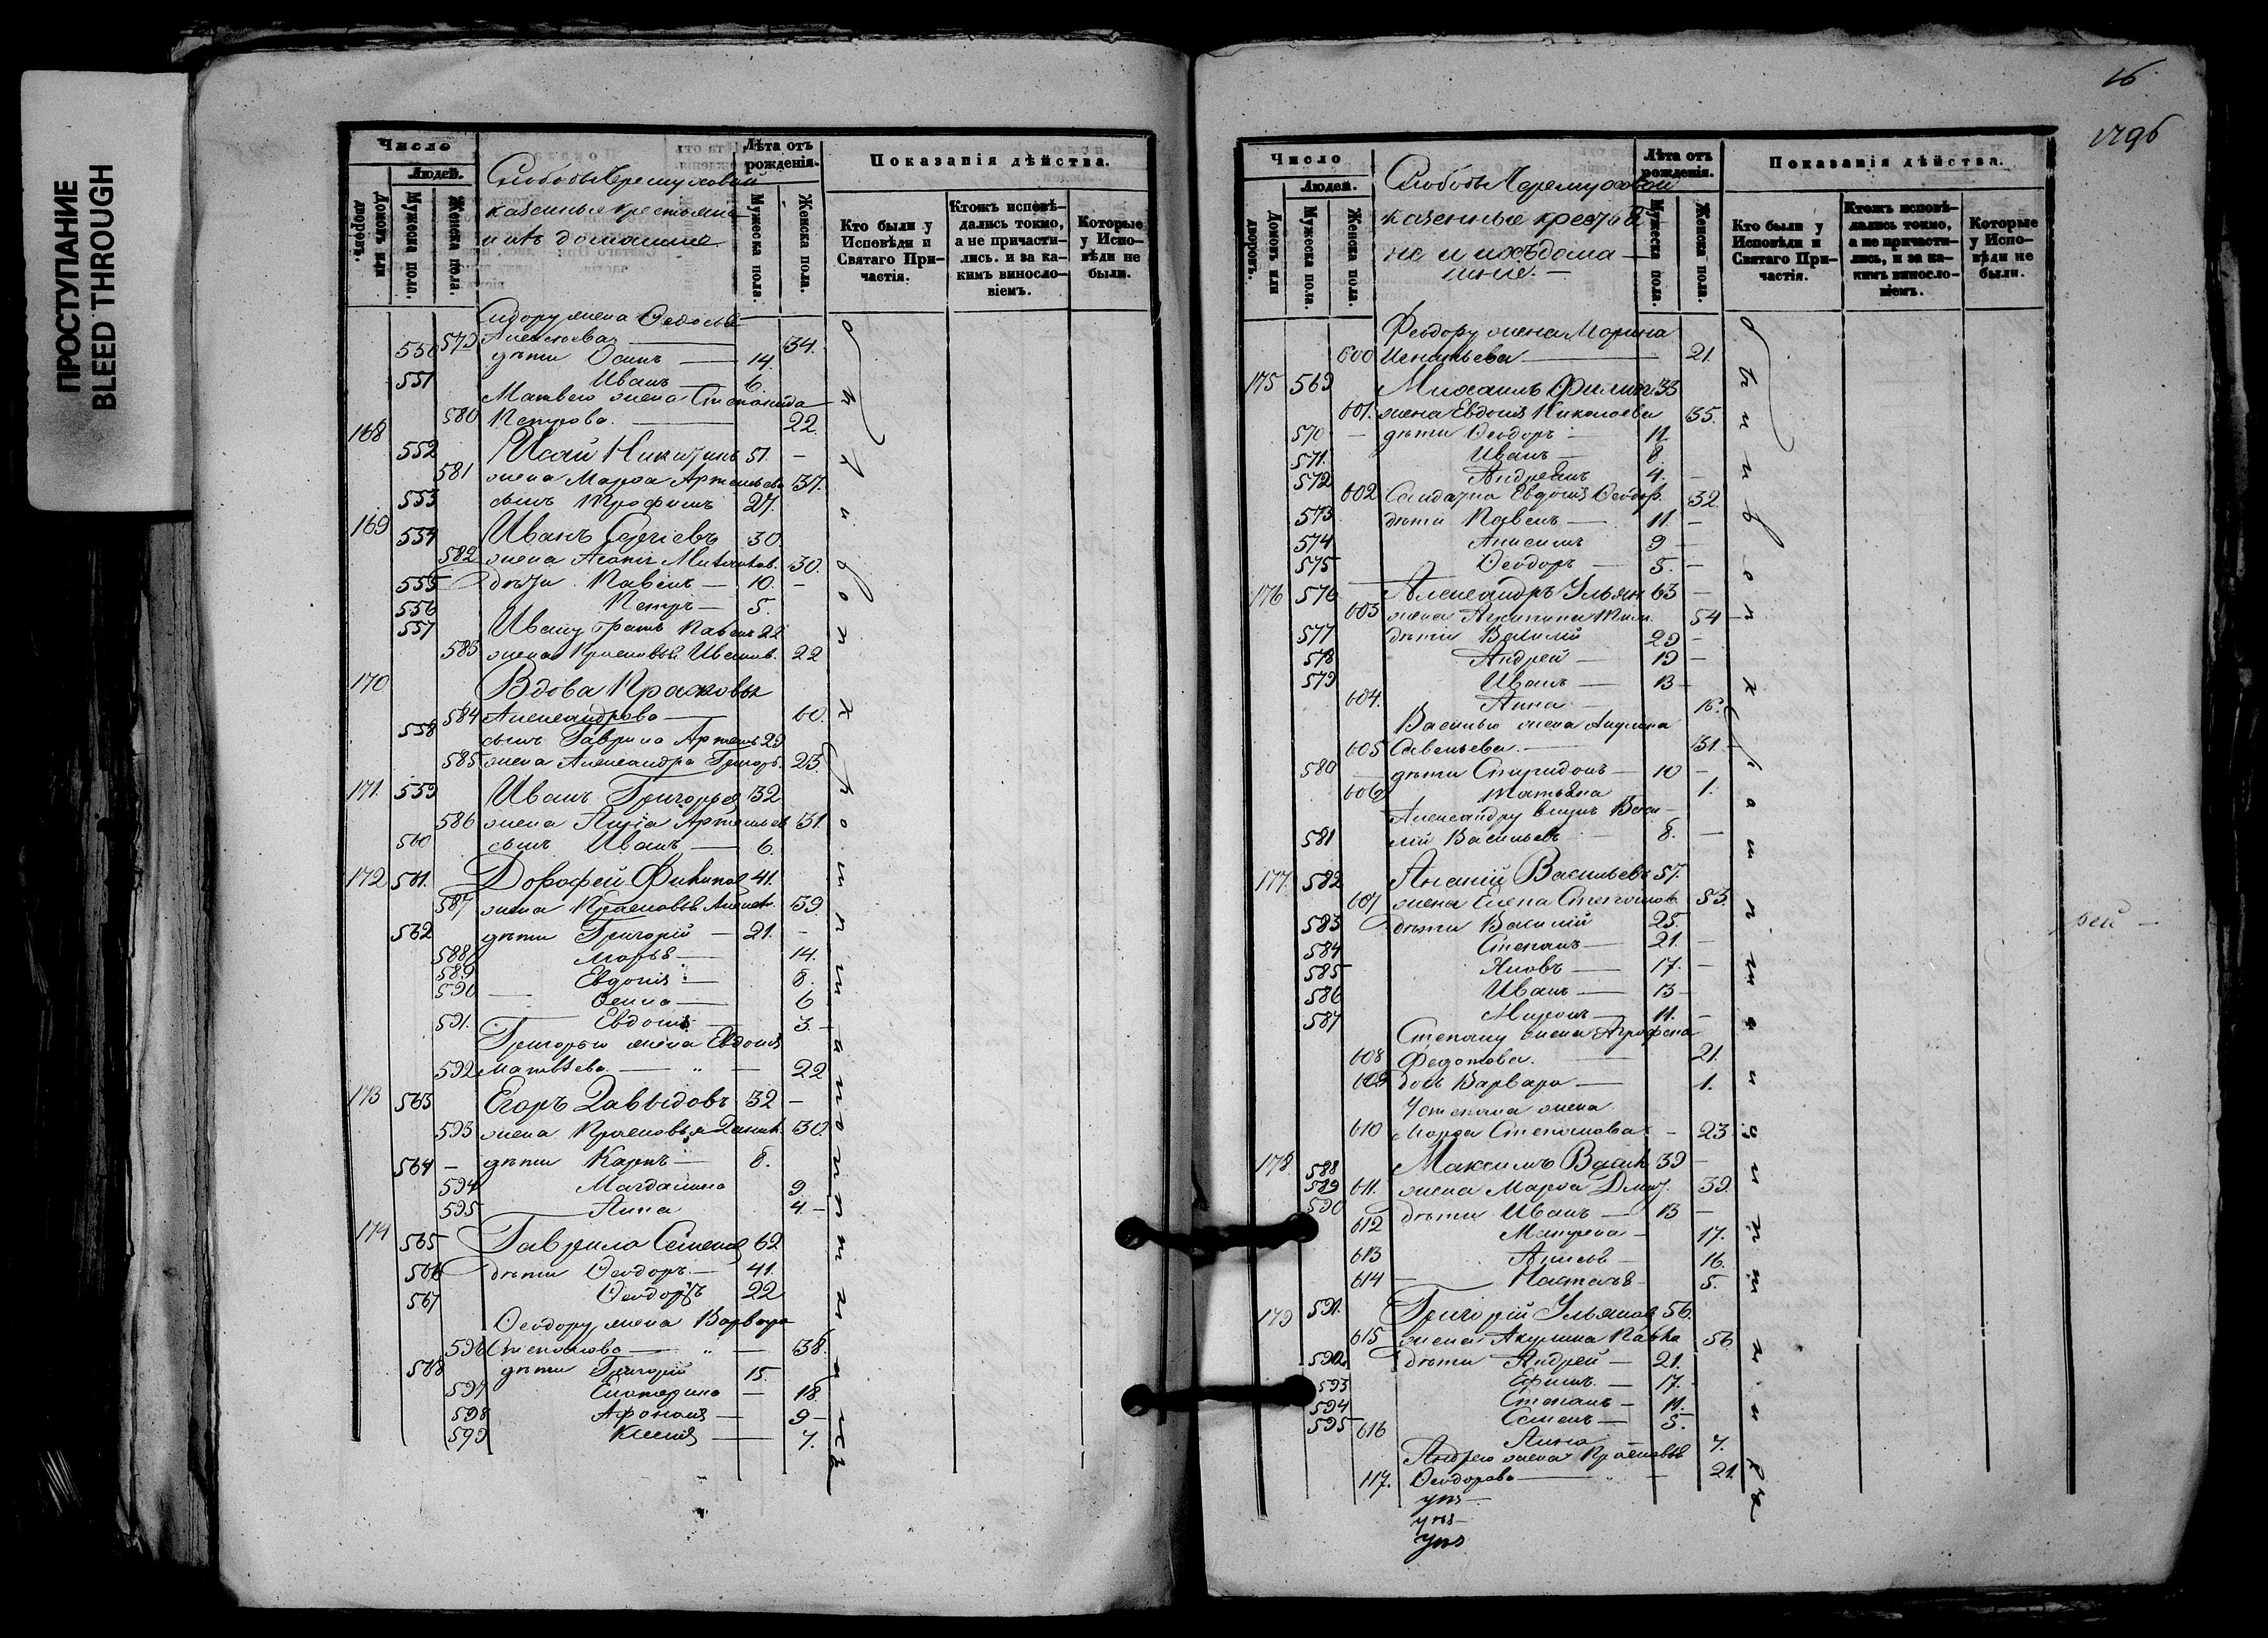 ПРОСТУПАНИЕ
BLEED THROUGH
Число
Людей.
Домовъ или дворовъ.
Мужеска пола.
Женска пола.
Слободы Черемуховой
казенные крестьяне
и ихъ домашние
Лѣта отъ рожденія.
Мужеска пола.
Женска пола.
Показанія дѣйства.
Кто были у Исповѣди и Святаго Причастія.
Ктожъ исповѣдались токмо, а не причастились. и за какимъ винословіемъ.
Которые у Исповѣди не были.
Сидору жена Ѳедосья
579 Алексѣева 34.
550 дѣти Осипъ 14.
551 Иванъ 6.
Матвею жена Степанида
580 Петрова. 22.
168 552 Исай Никитинъ 51.
581 жена Марѳа Артемьева 37.
553 сынъ Трофимъ 27.
169 554 Иванъ Сергіевъ 30
582 жена 30.
555 дѣти Павелъ 10.
556 Петръ 5.
557 Ивану братъ Павелъ 22
583 жена Прасковья Иванов. 22
170 Вдова Прасковья
584 Александрова 60.
558 сынъ Гаврила Артемъ 29
585 жена Александра Григорь. 23.
171. 559 Иванъ Григорьев 32
586 жена Артемьев 31.
560 сынъ Иванъ 6.
172 561. Дорофей Филипов 41.
587 жена Прасковья Алексее. 39.
562 дѣти Григорій 21.
588 Марья 14.
589 Евдокія 8.
590 6
591. Евдокія 3.
Григорью жена Евдокія
592 Матвѣева. 22
173 563 Егоръ Давыдовъ 32
593 жена Прасковья Данил. 30.
564 дѣти Карпъ 8.
594 Магдалина 9
595 Анна 4.
174 565 Гаврило Семенов 62
566 дѣти Ѳеодоръ. 41.
567 Ѳеодоръ 22
Ѳеодору жена Варвара
596 Степанова 38.
568 дѣти Григорій 15.
597 Екатерина 18.
598 Афонасія 9
599 Ксенія 7.
16
1796
Число
Людей.
Домовъ или дворовъ.
Мужеска пола.
Женска пола.
Слободы Черемуховой
казенные крестья
не и ихъ дома
шние.
Лѣта отъ рожденія.
Мужеска пола.
Женска пола.
Показанія дѣйства.
Кто были у Исповѣди и Святаго Причастія.
Ктожъ исповѣдались токмо, а не причастились, и за какимъ винословіемъ.
Которые у Исповѣди не были.
Феодору жена Марина
600 Игнатьева 21.
175 569 Михаилъ Филип. 33
601. жена Евдокія Николаева 35.
570 дѣти Ѳеодоръ 11.
571. Иванъ 8.
572 Андреянъ 4.
602 Солдатка Евдокія Ѳеодор. 32.
573 дѣти Павелъ 11.
574 Анисимъ 9
575 Ѳеодоръ 5.
176 576 Александръ Ульян 63
603 жена Акилина Тим. 54
577 дѣти Василій 29
578 Андрей 19
579 Иванъ 13
604. Анна 16.
Василью жена Акулина
605 Савельева. 31.
580 дѣти Спиридонъ 10
606 Татьяна 1.
Александру внукъ Васи
581 лій Васильевъ 8.
177. 582 Ананій Васильевъ 57.
607 жена Елена Степанов. 53.
583 дѣти Василій 25.
584 Степанъ 21.
585 Яковъ 17.
586 Иванъ 13
587 Миронъ 11.
Степану жена Агрофена
608 Федотова. 21.
609 дочь Варвара 1.
жена
610 Марѳа Степанова. 23
178. 588 Максимъ Васил. 39
589 611. жена Марѳа Дмит. 39.
590 дѣти Иванъ 13
612 Матрена 17.
613 Анисья 16.
614 Наталья 5.
179 591. Григорій Ульянов 56.
615 жена Акулина Павло 56
592 дѣти Андрей 21.
593 Ефимъ. 17.
594 Степанъ 11.
595 Семенъ 5.
616 Анна 7.
Андрею жена Прасковья
117. Ѳеодорова 21.